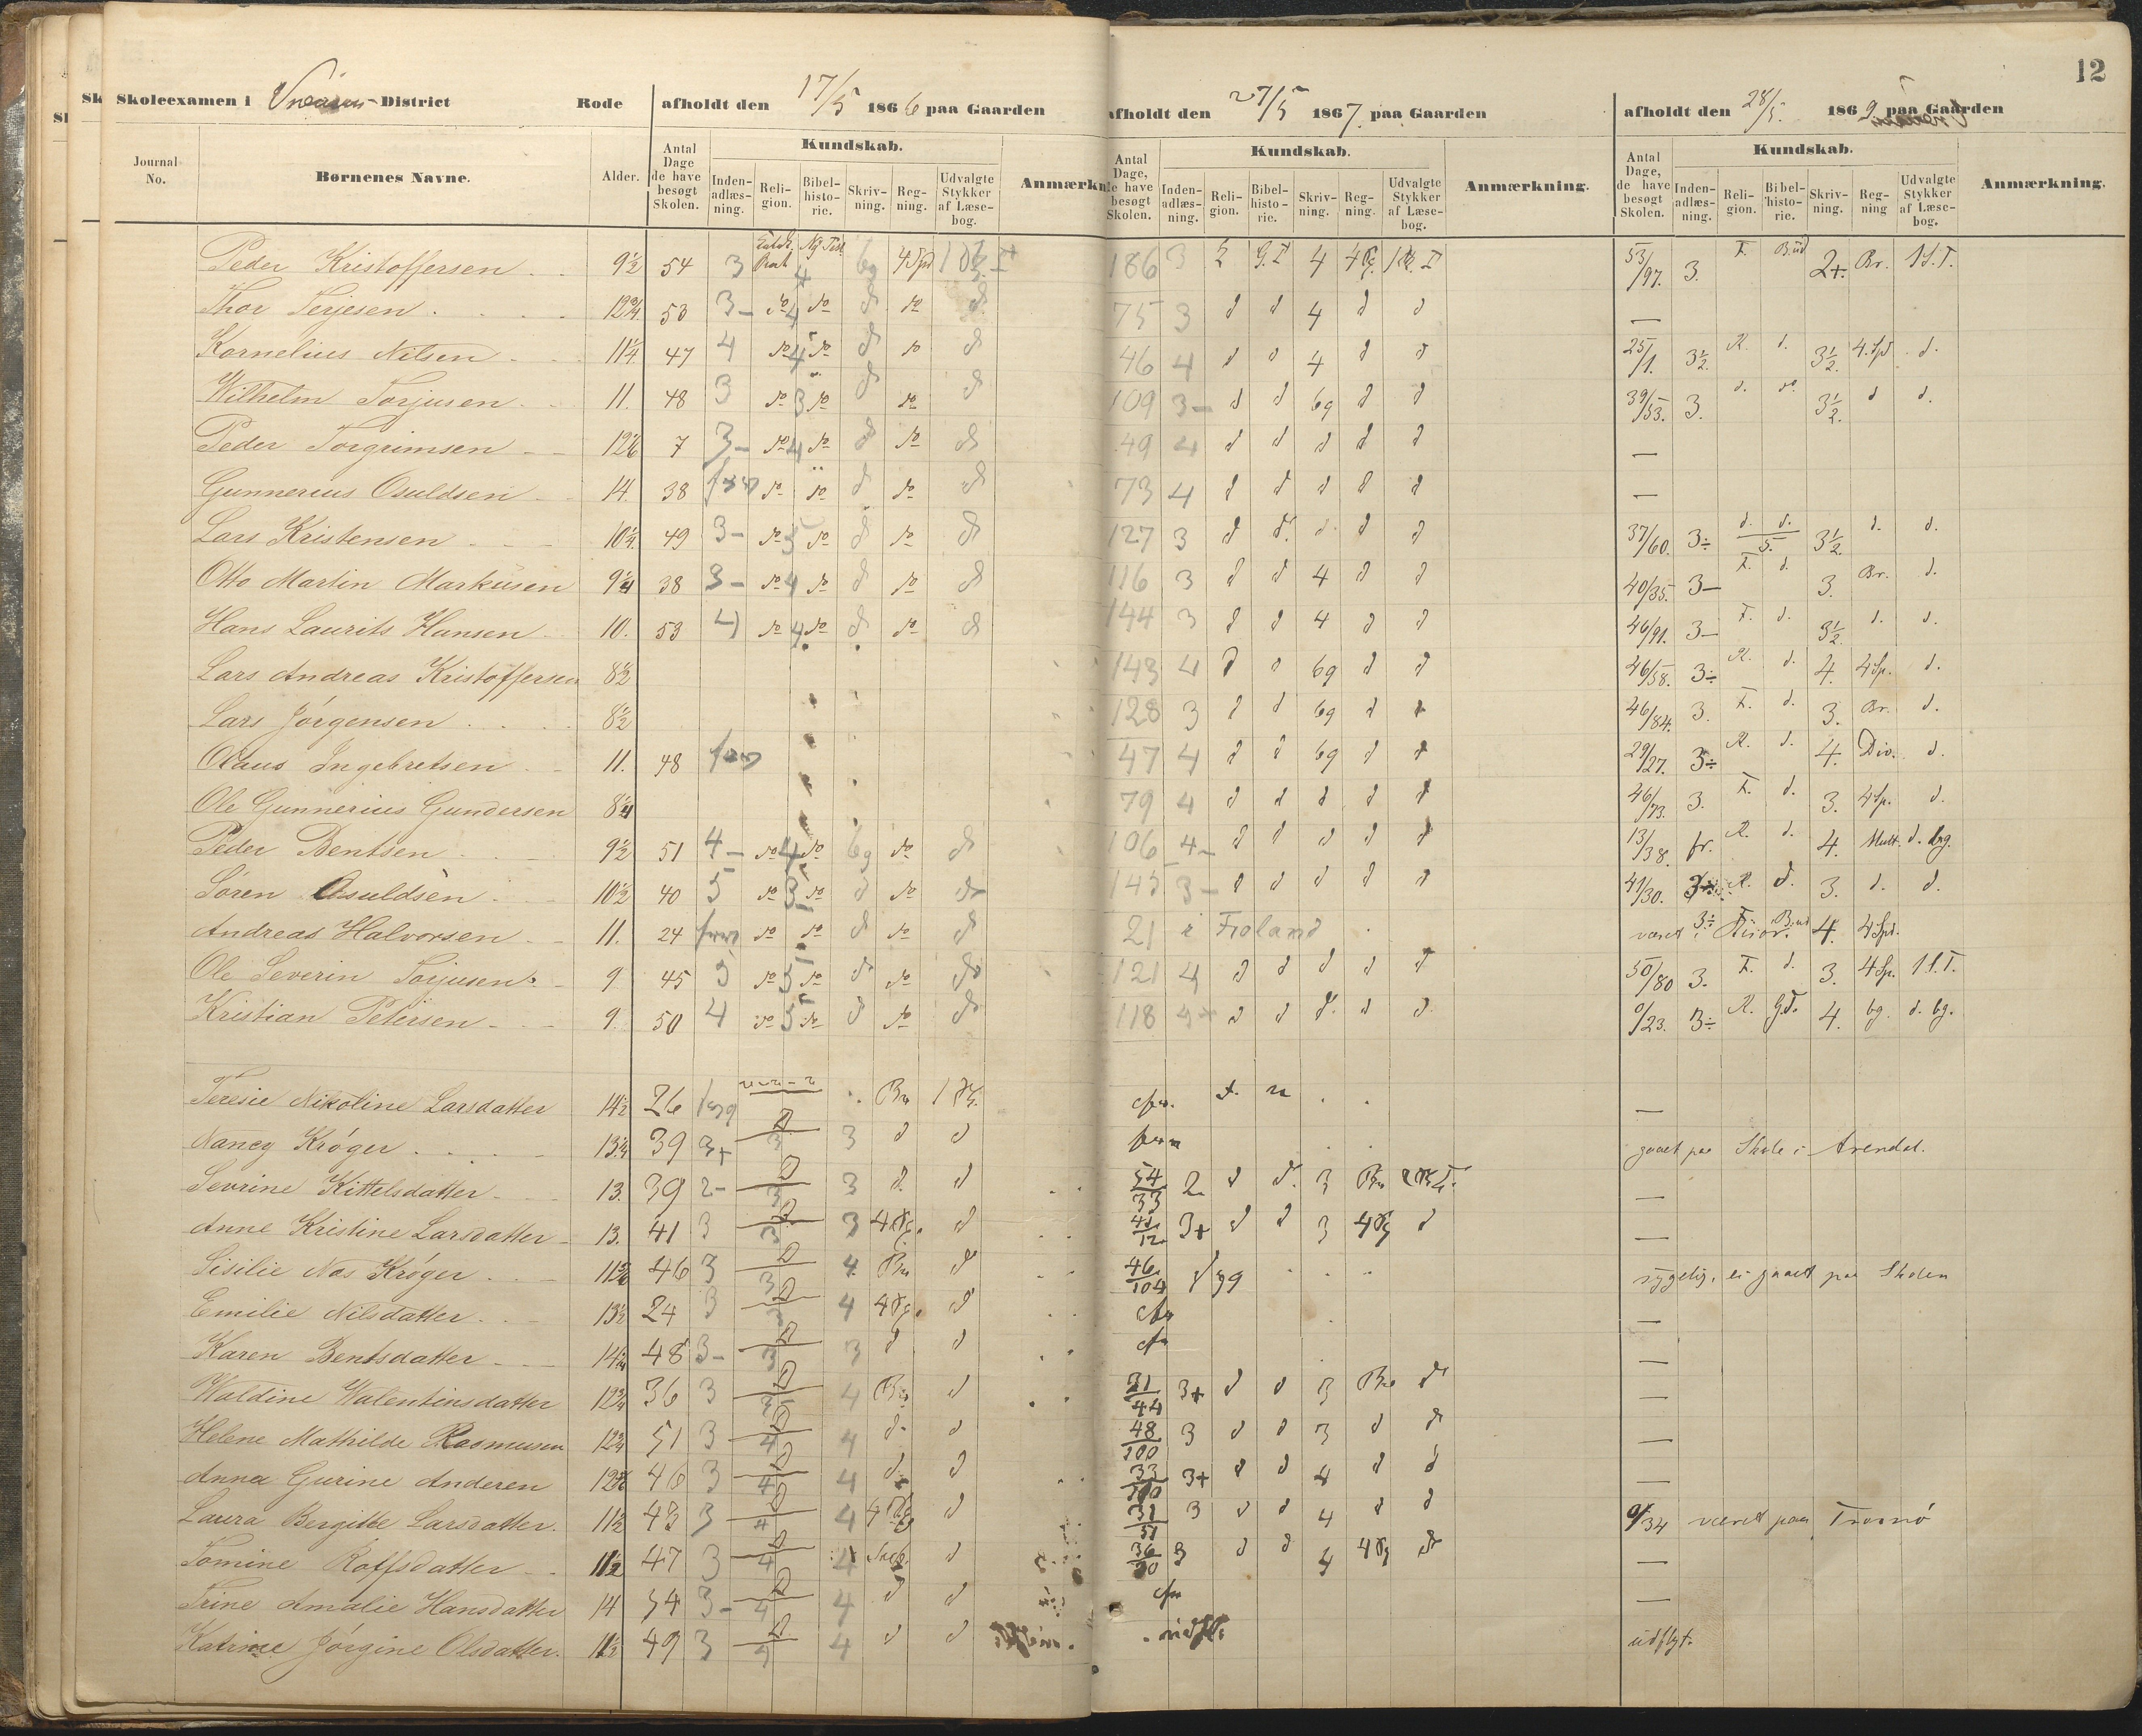 12
Skoleexamen i District Rode afholdt den 17/5 1866 paa Gaarden afholdt den 27/5 1867. paa Gaarden afholdt den 28/5. 1869. paa Gaarden
Journal No. Børnenes Navne. Alder. Antal Dage de have besøgt Skolen. Kundskab. Inden-adlæs-ning. Reli-gion. Bibel-histo-rie. Skriv-ning. Reg-ning. Udvalgte Stykker af Læse-bog. Anmærkn Antal Dage, de have besøgt Skolen. Kundskab. Inden-adlæs-ning. Reli-gion. Bibel-histo-rie. Skriv-ning. Reg-ning. Udvalgte Stykker af Læse-bog. Anmærkning. Antal Dage, de have besøgt Skolen. Kundskab. Inden-adlæs-ning. Reli-gion. Bibel-histo-rie. Skriv-ning. Reg-ning Udvalgte Stykker af Læse-bog. Anmærkning.
Peder Kristoffersen 9½ 54 3 4 bg 186 3 4 53/97. 3. F. 2+. Br. 1 S. T.
Thor Terjesen 53 3- do 4 do d do d 75 3 d d 4 d d —
Kornelius Nilsen 11¼ 47 4 do 4 do d do d 46 4 d d 4 d d 25/1. 3½. R. d. 3½. 4. Sp d.
Wilhelm Torjusen 11. 48 3 do 3 do d do d 109 3- d d bg d d 39/53. 3. d. do 3½. d d.
Peder Torgrimsen 7 3- do 4 do d do d 49 4 d d d d d —
Gunnerius Osuldsen 14. 38 do do d do d 73 4 d d d d d —
Lars Kristensen 49 3- do 3 do d do d 127 3 d d. d. d d 37/60. 3÷ d. d. 3½. d. d.
Otto Martin Markusen 9¼ 38 3- do 4 do d do d 116 3 d d 4 d d 40/35. 3- F. d. 3. Br. d.
Hans Laurits Hansen 10. 53 4 do 4 do d do d 144 3 d d 4 d d 46/91. 3- F. d. 3½. d. d.
Lars Andreas Kristoffersen 8½ 143 4 d d bg d d 46/58. 3÷ R. d. 4. 4 Sp. d.
Lars Jörgensen 8½ 128 3 d d bg d d 46/84. 3. F. d. 3. Br. d.
Olaus Ingebretsen 11. 48 47 4 d d bg d d 29/27. 3÷ R. d. 4. Div. d.
Ole Gunnerius Gundersen 8¼ 79 4 d d d d d 46/73. 3. F. d. 3. 4 Sp. d.
Peder Bentsen 9½ 51 4- do 4 do bg do d 106 4- d d d d d 13/38. fr. R. d. 4. Mult. d. bg.
Søren Osuldsen 10½ 40 3 do 3 do d do d 3- d d d d d 41/30. R. d. 3. d. d.
Andreas Halvorsen 11. 24 do do d do d 21 i Froland været i 4. 4 Spd.
Ole Severin Torjusen 9 45 3 do 3 do d do d 121 4 d d d d d 50/80 3. F. d. 3. 4 Sp. 1 S. T.
Kristian Petersen 9. 50 4 do 3 do d do d 118 d d d. d d. 0/23. 3÷ R. G.T. 4. bg. d. bg.
Teresie Nikoline Larsdatter 14½ 26 Br —
Nancy Kröger 13¼ 39 3+ D 3 3 d d gaaet paa Skole i Arendal.
Sevrine Kittelsdatter 13. 39 2- D 3 3 d. d 54/33 2 d d. 3 Br —
Anne Kristine Larsdatter 13. 41 3 D 3 3 d 3+ d d 3 d —
Sisilie Nos Kröger 46 3 D 3 4. Br d 46/104 sygelig, ei gaaet paa Skolen
Emilie Nilsdatter 13½ 24 3 D 4 d —
Karen Bentsdatter 48 3- D 3 3 d d —
Waldine Walentinsdatter 12¾ 36 3 D 3 4 Br d 31/44 3+ d d 3 Br d —
Helene Mathilde Rasmusen 12¾ 51 3 D 4 4 d. d 48/100 3 d d 3 d d —
Anna Gurine Anderen 46 3 D 4 4 d d 33/100 3+ d d 4 d d —
Laura Bergitte Larsdatter. 11½ 43 3 D 4 4 d 31/51 3 d d 4 d d 0/34 været paa Tromö
Tomine Roffsdatter 11½ 47 3 D 4 4 d 3 d d 4 d —
Trine Amalie Hansdatter 14 54 3- D 4 4 d d —
Katrine Jörgine Olsdatter. 11½ 49 3 D 4 4 d d udfl. udflyt.